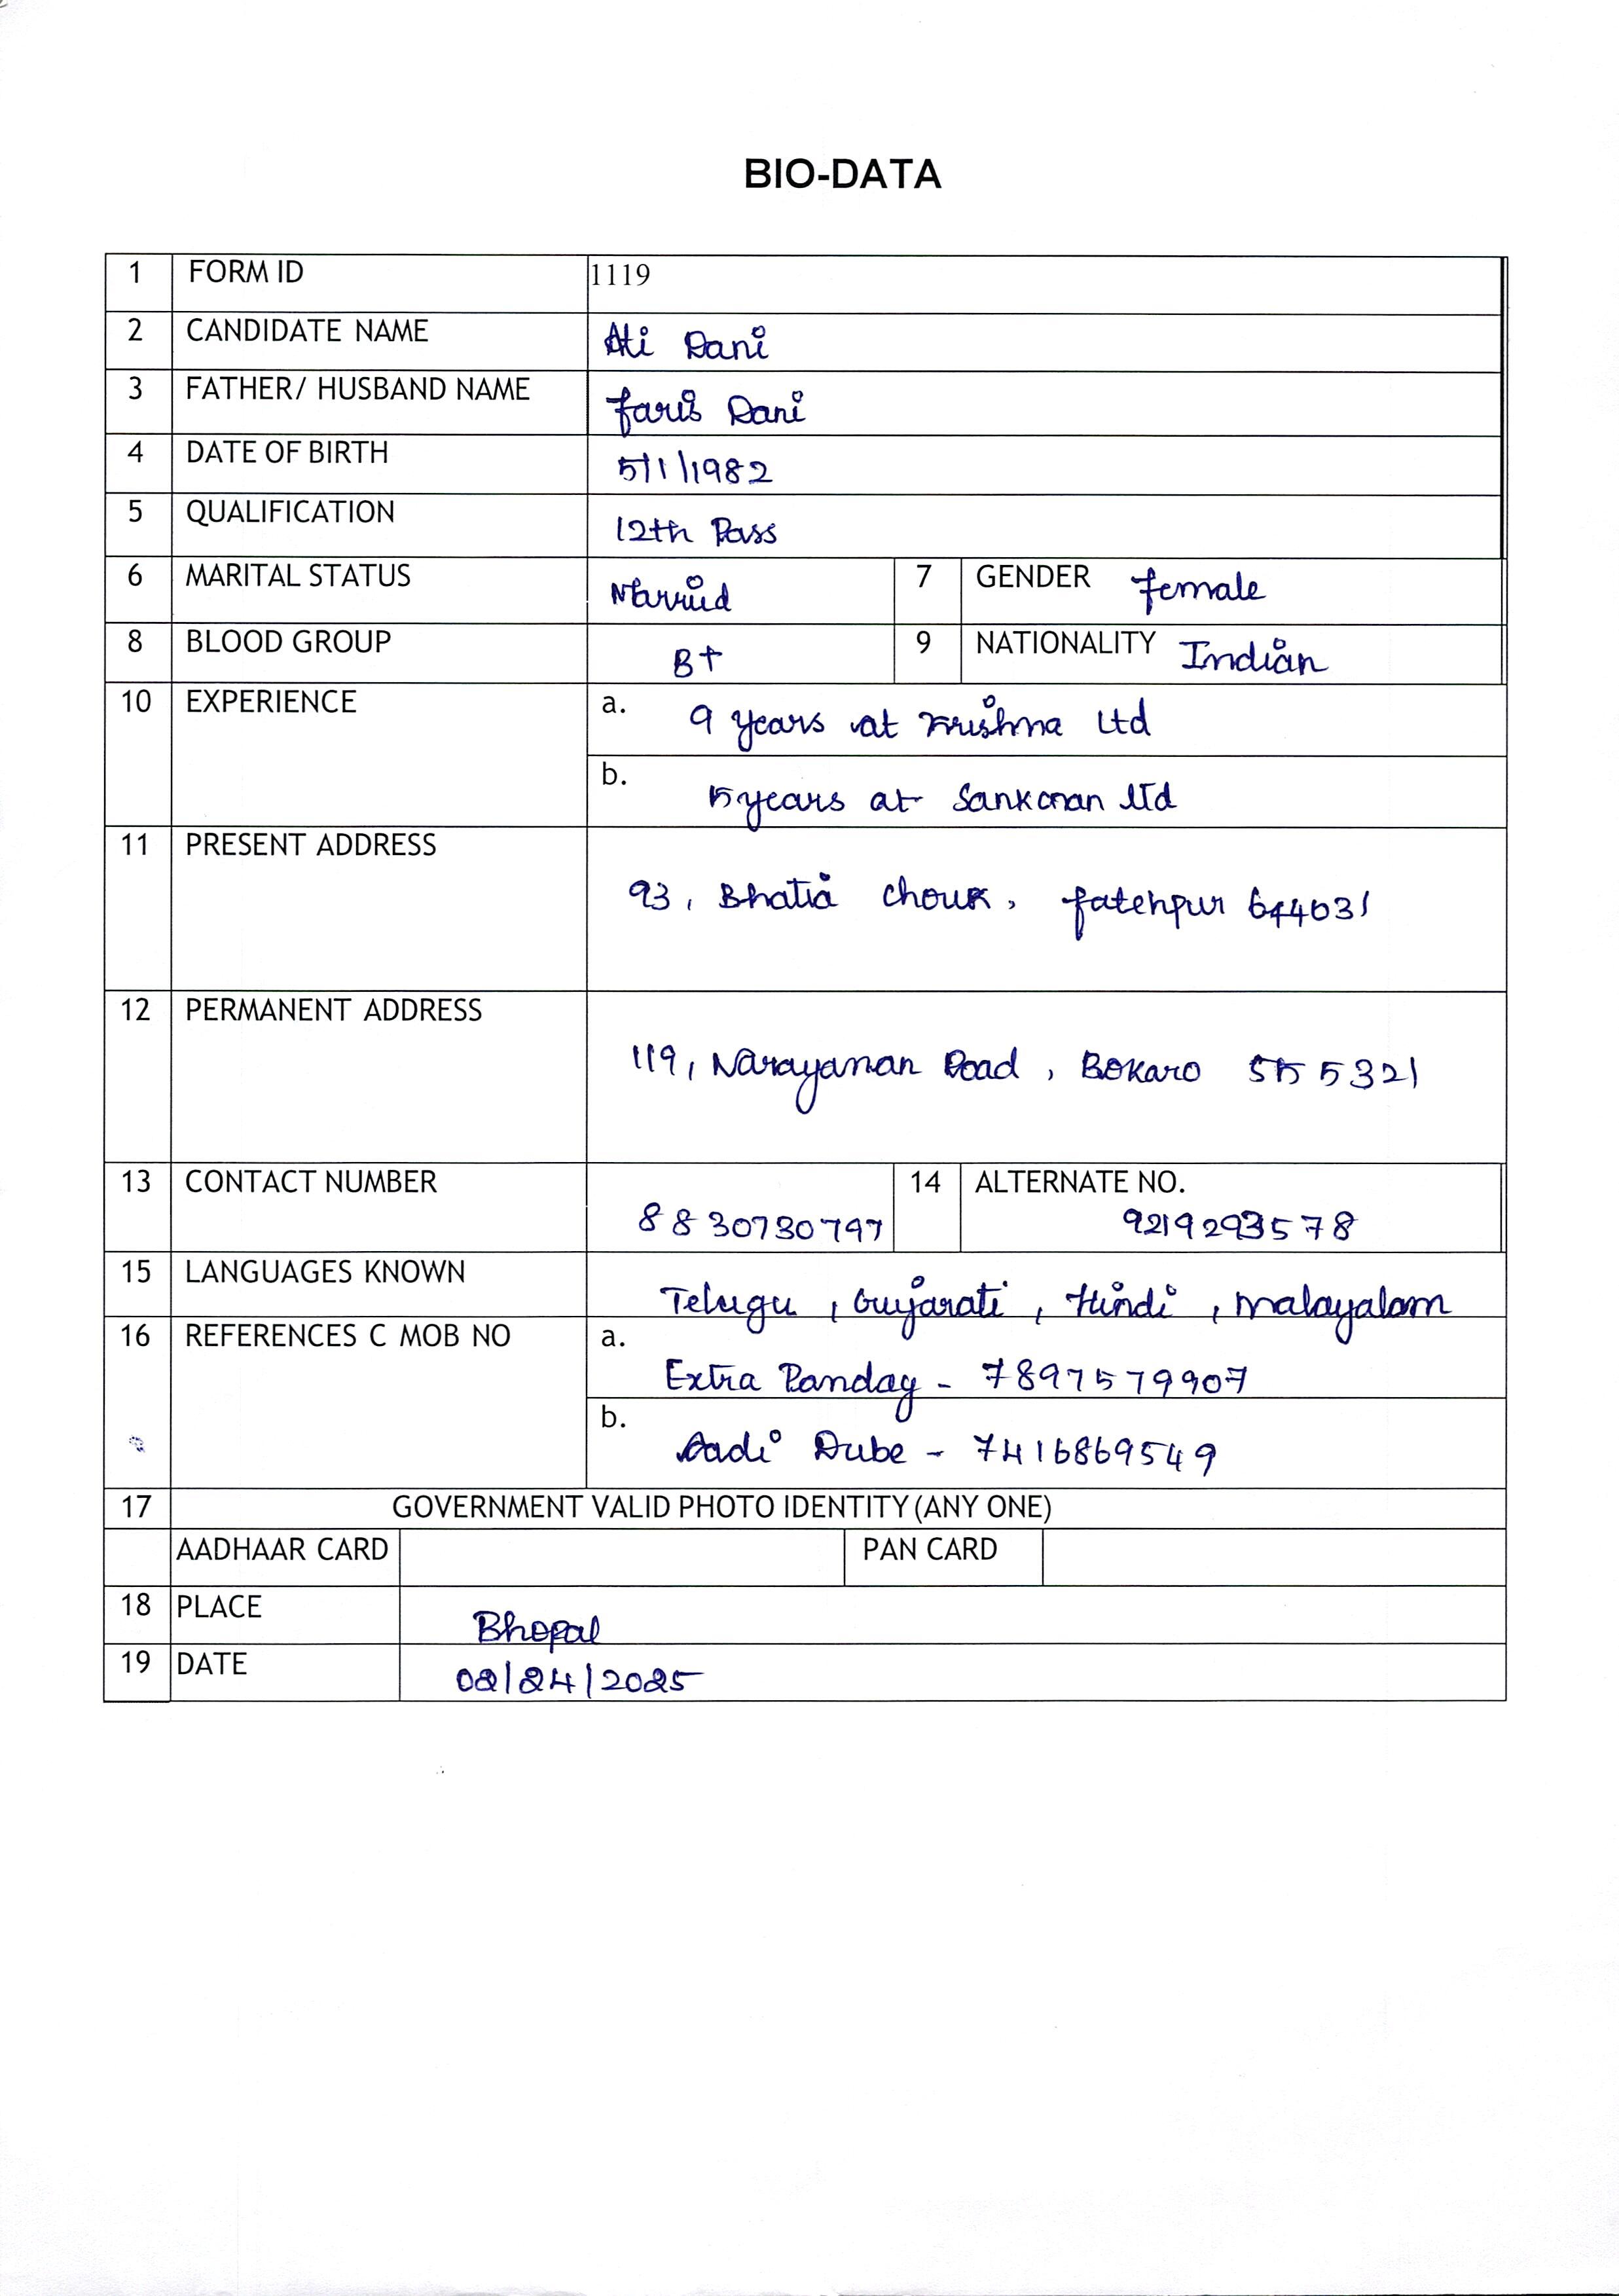 BIO-DATA
1 FORM ID 1119
2 CANDIDATE NAME Ali Rani
3 FATHER/ HUSBAND NAME Faris Rani
4 DATE OF BIRTH 5/1/1982
5 QUALIFICATION 12th Pass
6 MARITAL STATUS Married 7 GENDER female
8 BLOOD GROUP B+ 9 NATIONALITY Indian
10 EXPERIENCE a. 9 years at Krishna Ltd
b. 5 years at Sankaran Ltd
11 PRESENT ADDRESS
93, Bhatia Chowk, Fatehpur 644031
12 PERMANENT ADDRESS
119, Narayanan Road, Bokaro 555321
13 CONTACT NUMBER 8830730797 14 ALTERNATE NO.
9219293578
15 LANGUAGES KNOWN Telugu, Gujarati, Hindi, Malayalam
16 REFERENCES C MOB NO a.
Extra Panday - 7897579907
b.
Aadi Dube - 7416869549
17 GOVERNMENT VALID PHOTO IDENTITY (ANY ONE)
AADHAAR CARD PAN CARD
18 PLACE Bhopal
19 DATE 02/24/2025